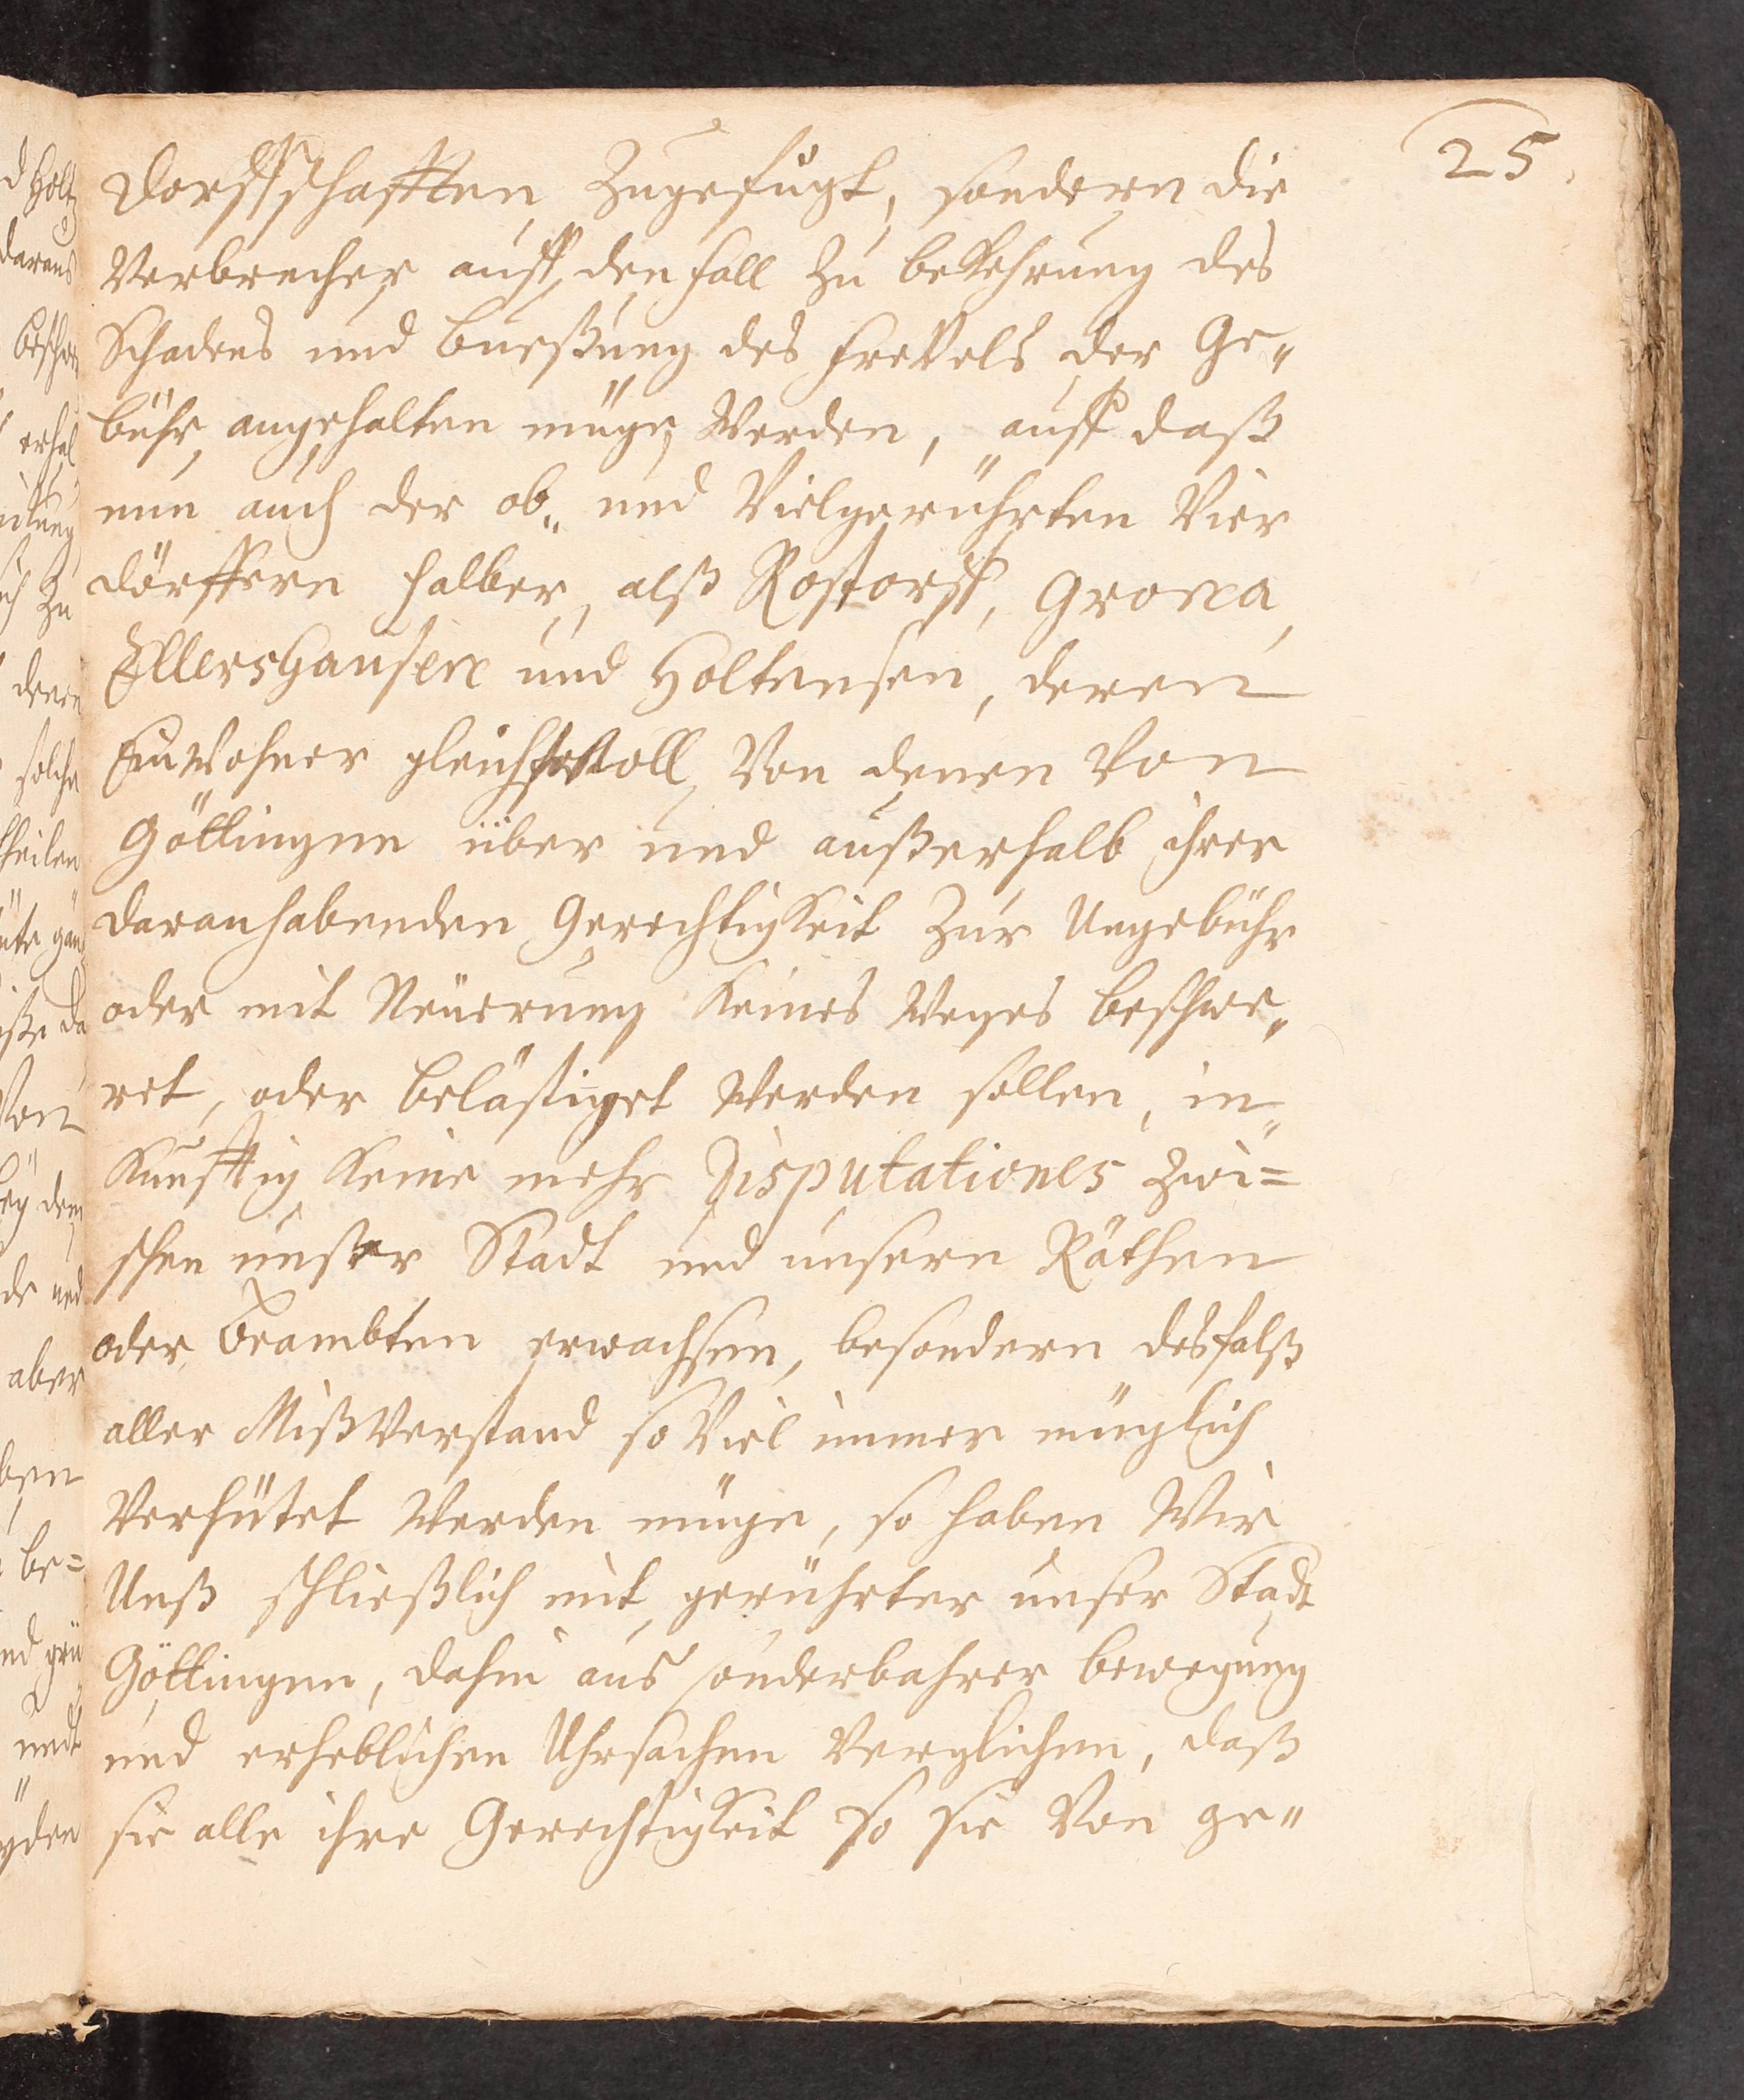 25.
Dorffschafften Zugefügt, sondern die
Verbrecher auff den fall zu bekehrung des
Schadens und bueßung des freVels der Ge„
bühr angehalten müge Werden, auff daß
nun auch der ob„ und Vielgerührten Vier
dörffern halber, alß Rostorff, Grona,
Ellershausen und Holtensen, deren
EinWohner gleichWoll Von denen Von
Göttingen über und außerhalb ihrer
daranhabenden Gerechtigkeit Zur Ungebühr
oder mit Neüerung Keines Weges beschwe„
ret, oder belästiget Werden sollen, in„
Künfftig Keine mehr Disputationes Zwi=
schen unser Stadt und unsern Räthen
oder Beambten erwachsen, besondern desfalß
aller MißVerstand so Viel immer müglich
Verhütet Werden müge, so haben Wir
Unß schließlich mit gerührter unser Stadt
Göttingen, dahin aus sonderbahrer bewegung
und erheblichen Uhrsachen Verglichen, daß
sie alle ihre Gerechtigkeit so sie Von ge„